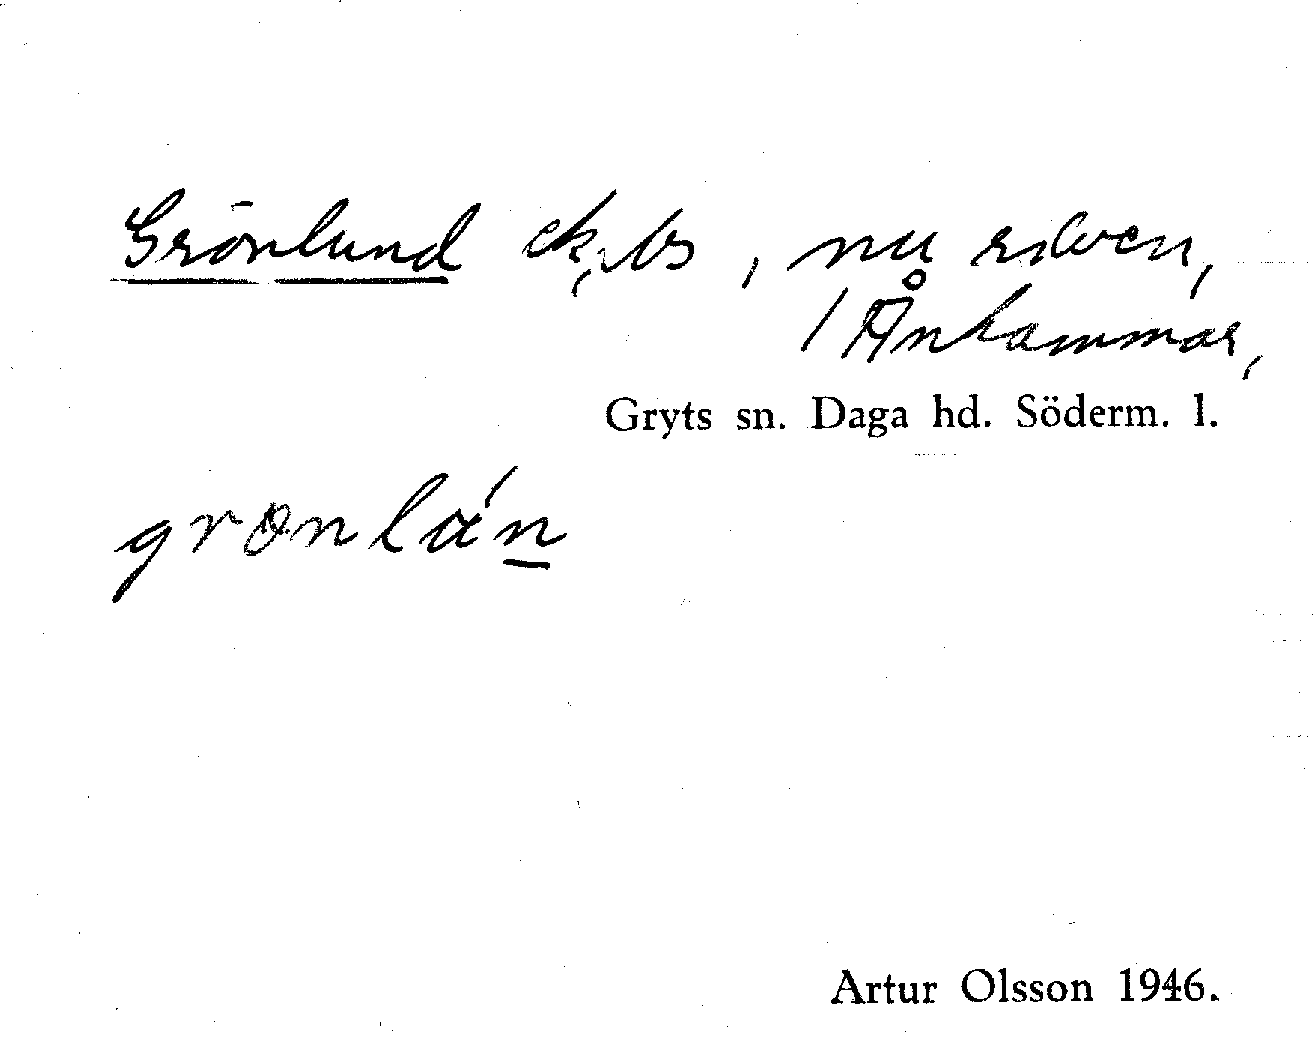 Grönlund ek, ls, nu riven,
/ Ånhammar,
Gryts sn. Daga hd. Söderm. l.
grønlán
Artur Olsson 1946.